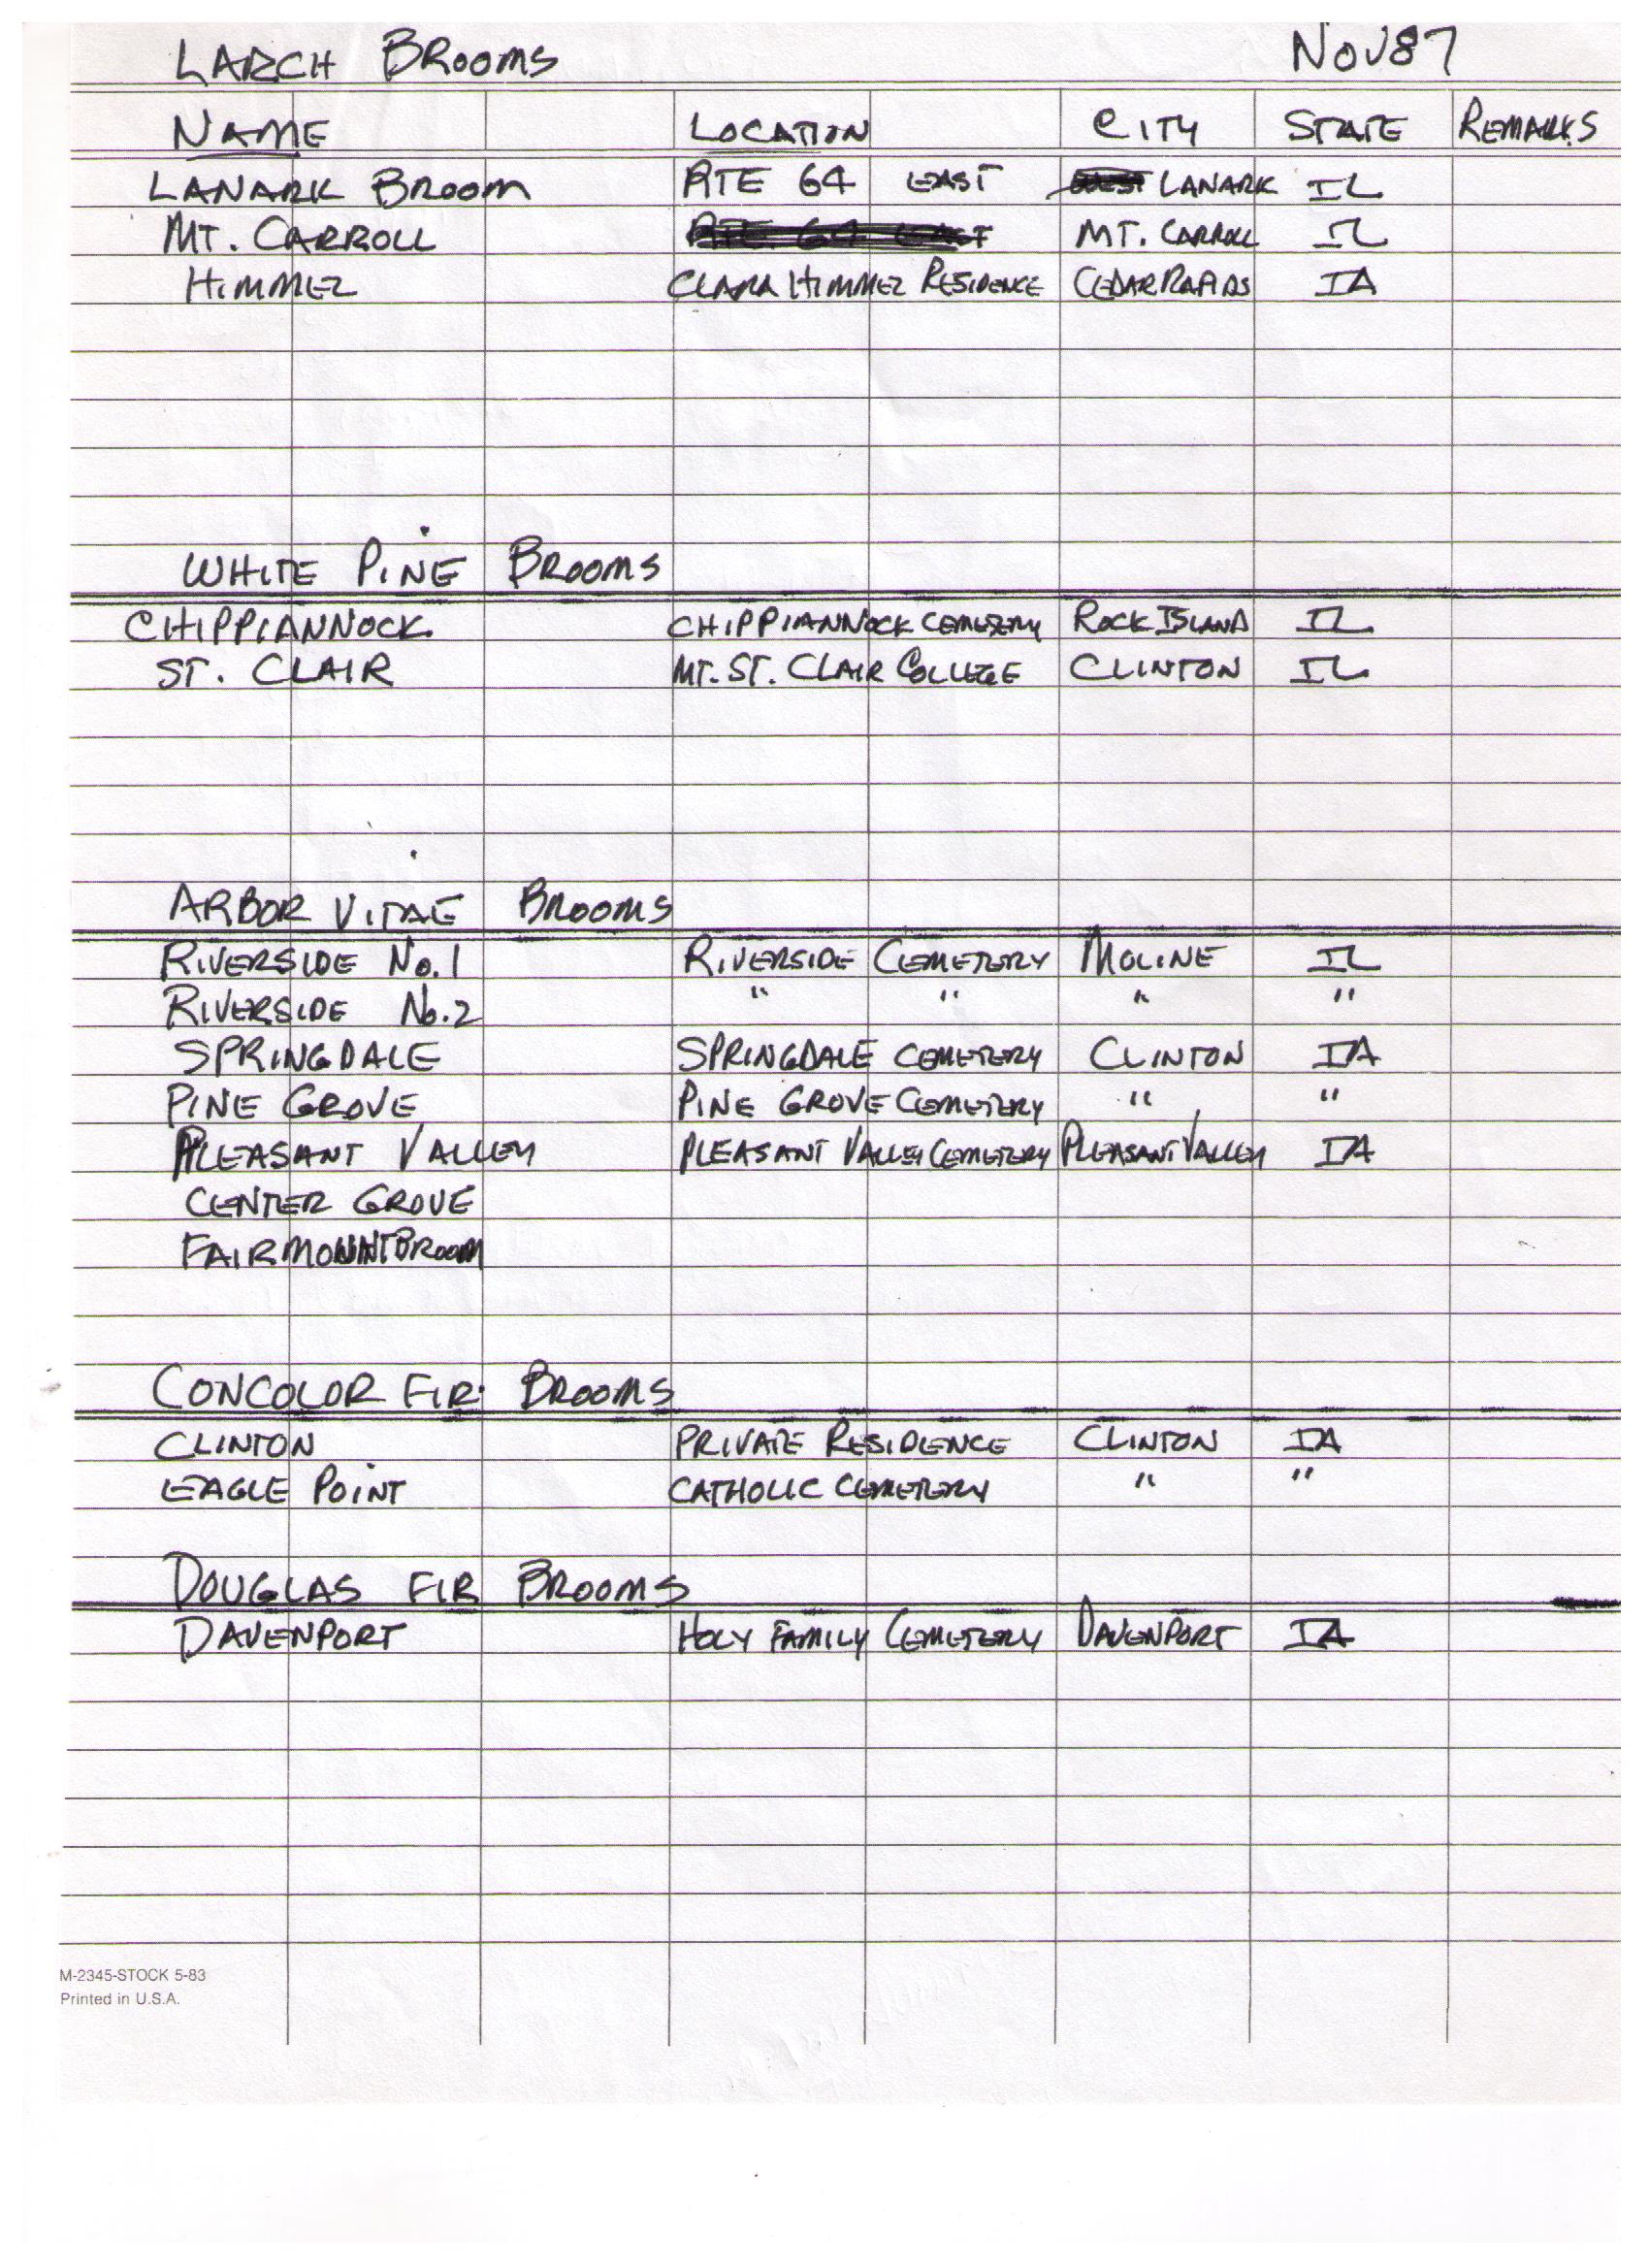 LARCH BROOMS NOV87
NAME LOCATION CITY STATE REMARKS
LANARK BROOM RTE 64 EAST LANARK IL
MT. CARROLL RTE 64 EAST MT. CARROLL IL
HIMMEL CLARA HIMMEL RESIDENCE CEDAR RAPIDS IA
WHITE PINE BROOMS
CHIPPIANNOCK CHIPPIANNOCK CEMETERY ROCK ISLAND IL
ST. CLAIR MT. ST. CLAIR COLLEGE CLINTON IL
ARBOR VITAE BROOMS
RIVERSIDE No. 1 RIVERSIDE CEMETERY MOLINE IL
RIVERSIDE No. 2 " " " "
SPRINGDALE SPRINGDALE CEMETERY CLINTON IA
PINE GROVE PINE GROVE CEMETERY " "
PLEASANT VALLEY PLEASANT VALLEY CEMETERY PLEASANT VALLEY IA
CENTER GROVE
FAIRMOUNT BROOM
CONCOLOR FIR BROOMS
CLINTON PRIVATE RESIDENCE CLINTON IA
EAGLE POINT CATHOLIC CEMETERY " "
DOUGLAS FIR BROOMS
DAVENPORT HOLY FAMILY CEMETERY DAVENPORT IA
M-2345-STOCK 5-83
Printed in U.S.A.